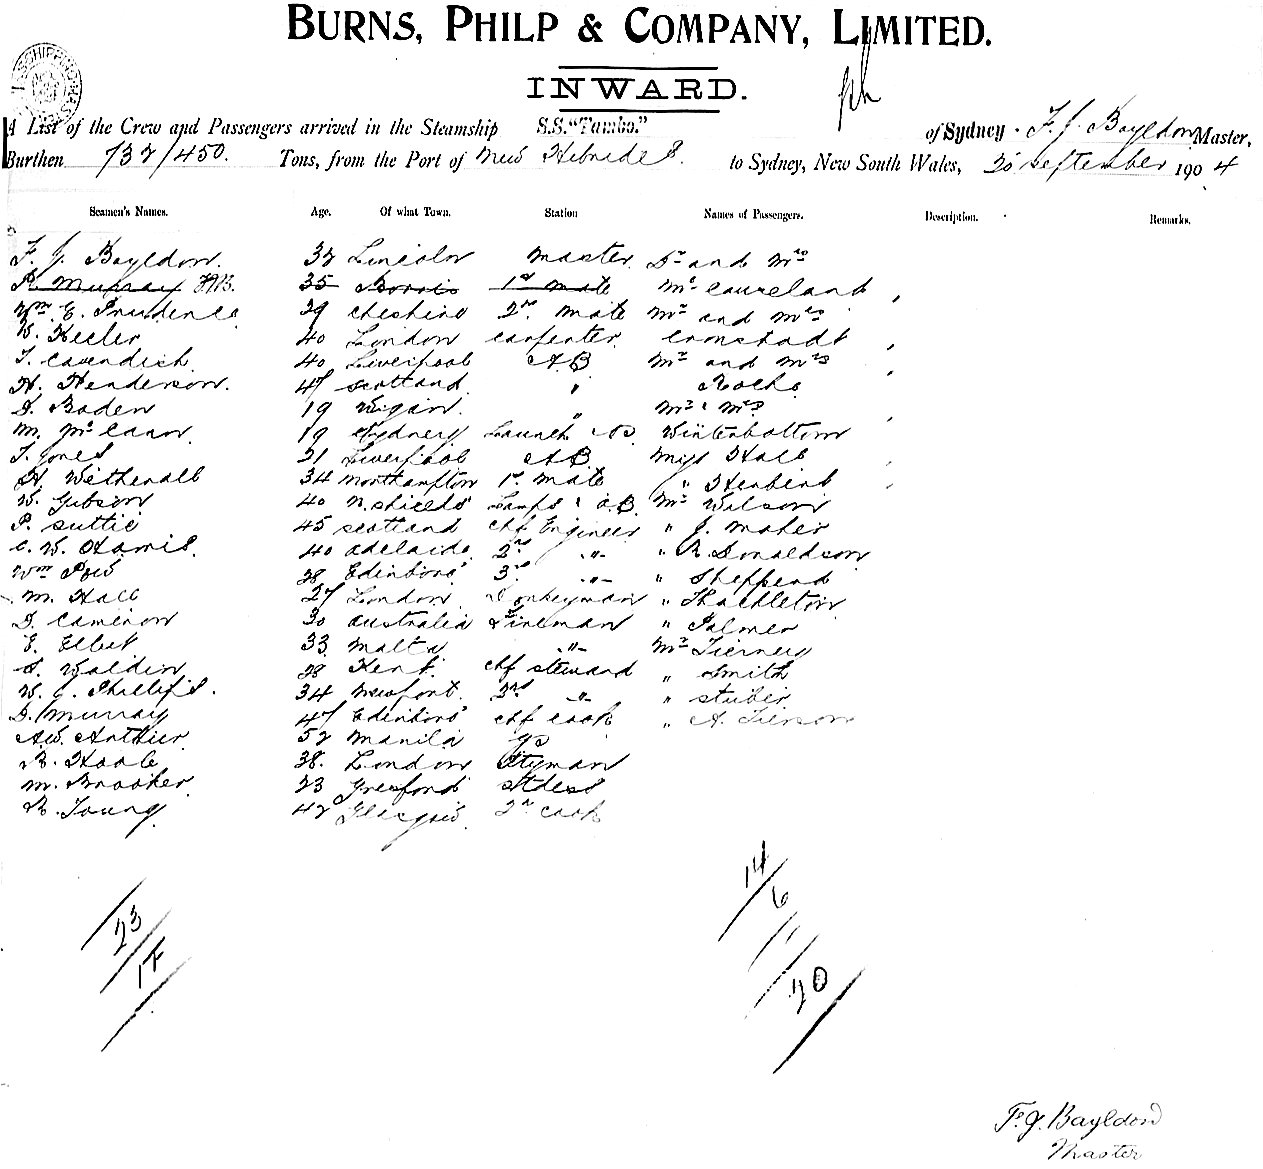 BURNS, PHILP & COMPANY, LIMITED.
INWARD.
A List of the Crew and Passengers arrived in the Steamship S.S. "Tambo." of Sydney F. J. Bayldon Master,
Burthen 732/450. Tons, from the Port of New Hebrides. to Sydney, New South Wales, 20 September 1904
Seamen's Names. Age. Of what Town. Station Names of Passengers. Description. Remarks.
F. J. Bayldon. 32 Lincoln Master Dr and Mrs
R Murray FJB. 35 1st Mate Mc Causeland
Wm E. Prudence 29 Cheshire 2nd Mate Mr and Mrs
W. Heeler 40 London carpenter Cronstadt
T. Cavendish 40 Liverpool AB Mr and Mrs
H. Henderson. 47 Scotland " Roche
D. Baden 19 Wigan. " Mr & Mrs
M. McCann. 19 Sydney Launch Winterbottom
T. Jones 21 Liverpool AB Miss Hall
H. Wethenall 34 Northampton 1st Mate " Herbert
W. Gibson 40 N. Shields Lamps & A.B. Mr Wilson
P. Suttie 45 Scotland chf Engineer " J. Maher
C. W. Harris. 40 Adelaide. 2nd -"- " R Donaldson
Wm Pow 28 Edinboro' 3rd -"- " Sheppard
M. Hall 27 London Donkeyman " Shackleton
D. Cameron 30 Australia Fireman " Palmer
E. Ellul 33 Malta -"- Mr Tierney
S. Waldin 28 Kent. chf steward " Smith
W. C. Phillips. 34 Newport. 2nd " " Stuber
D. Murray 47 Edinboro' chf cook " A. Tierson
Aw. Arthier 52 Manila
R. Hoole 38. London Ptyman
M. Brooker 23 Gresford stdess
R. Young 42 Glasgow. 2nd cook
23
17
14
6
20
F. J. Bayldon
Master